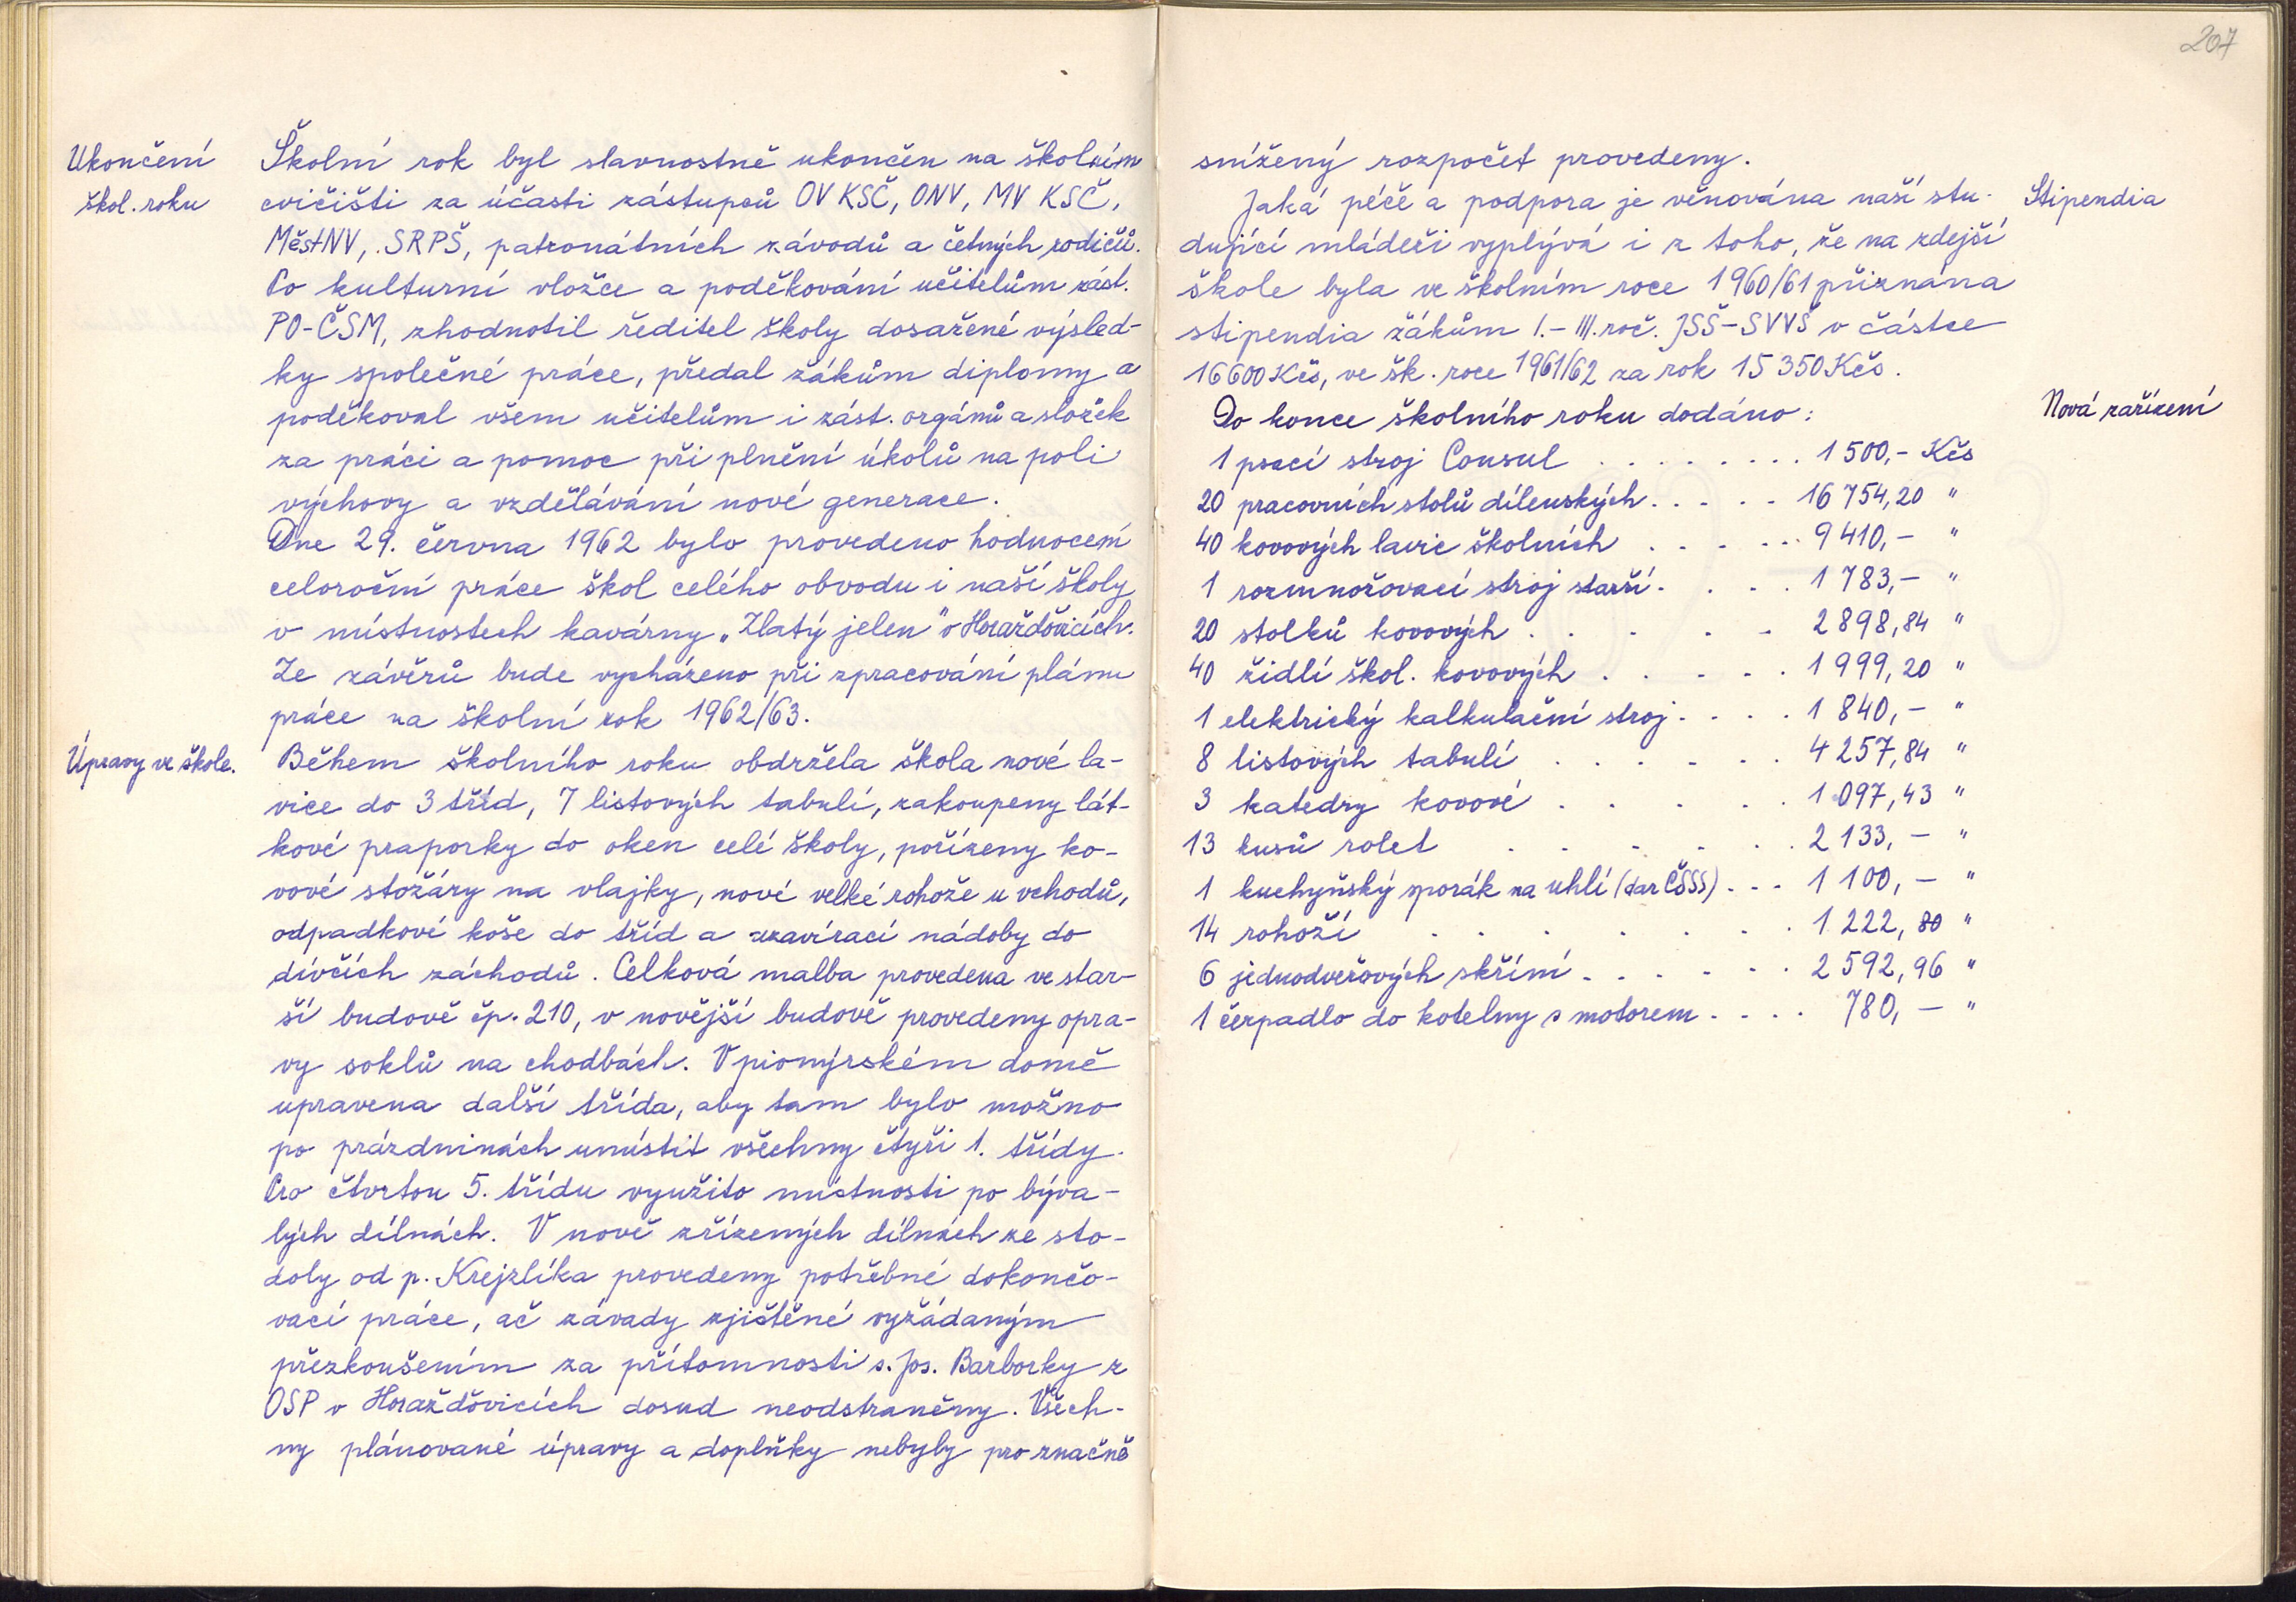 207
Ukončení
škol. roku
Školní rok byl slavnostně ukončen na školním
cvičišti za účasti zástupců OV KSČ, ONV, MV KSČ,
MěstNV, SRPŠ, patronátních závodů a četných rodičů.
Po kulturní vložce a poděkování učitelům zást.
PO-ČSM, zhodnotil ředitel školy dosažené výsled-
ky společné práce, předal žákům diplomy a
poděkoval všem učitelům i zást. orgánů a složek
za práci a pomoc při plnění úkolů na poli
výchovy a vzdělávání nové generace.
Dne 29. června 1962 bylo provedeno hodnocení
celoroční práce škol celého obvodu i naší školy
v místnostech kavárny „Zlatý jelen" v Horažďovicích.
Ze závěrů bude vycházeno při zpracování plánu
práce na školní rok 1962/63.
Úpravy ve škole.
Během školního roku obdržela škola nové la-
vice do 3 tříd, 7 listových tabulí, zakoupeny lát-
kové praporky do oken celé školy, pořízeny ko-
vové stožáry na vlajky, nové velké rohože u vchodů,
odpadkové koše do tříd a uzavírací nádoby do
dívčích záchodů. Celková malba provedena ve star-
ší budově čp. 210, v novější budově provedeny opra-
vy soklů na chodbách. V pionýrském domě
upravena další třída, aby tam bylo možno
po prázdninách umístit všechny čtyři 1. třídy.
Pro čtvrtou 5. třídu využito místnosti po býva-
lých dílnách. V nově zřízených dílnách ze sto-
doly od p. Krejzlíka provedeny potřebné dokončo-
vací práce, ač závady zjištěné vyžádaným
přezkoušením za přítomnosti s. Jos. Barborky z
OSP v Horažďovicích dosud neodstraněny. Všech-
ny plánované úpravy a doplňky nebyly pro značně
snížený rozpočet provedeny.
Stipendia
Jaká péče a podpora je věnována naší stu-
dující mládeži vyplývá i z toho, že na zdejší
škole byla ve školním roce 1960/61 přiznána
stipendia žákům I.–III. roč. JSŠ–SVVŠ v částce
16600 Kčs, ve šk. roce 1961/62 za rok 15 350 Kčs.
Nová zařízení
Do konce školního roku dodáno:
1 psací stroj Consul . . . . . . . . 1 500,- Kčs
20 pracovních stolů dílenských . . . . . 16 754,20 "
40 kovových lavic školních . . . . . . 9 410,- "
1 rozmnožovací stroj starší . . . . 1 783,- "
20 stolků kovových . . . . . . 2 898,84 "
40 židlí škol. kovových . . . . . 1 999,20 "
1 elektrický kalkulační stroj . . . . 1 840,- "
8 listových tabulí . . . . . . 4 257,84 "
3 katedry kovové . . . . . 1 097,43 "
13 kusů rolet . . . . . . . 2 133,- "
1 kuchyňský sporák na uhlí (dar ČSSS) . . . 1 100,- "
14 rohoží . . . . . . . . 1 222,80 "
6 jednodveřových skříní . . . . . . 2 592,96 "
1 čerpadlo do kotelny s motorem . . . . 780,- "